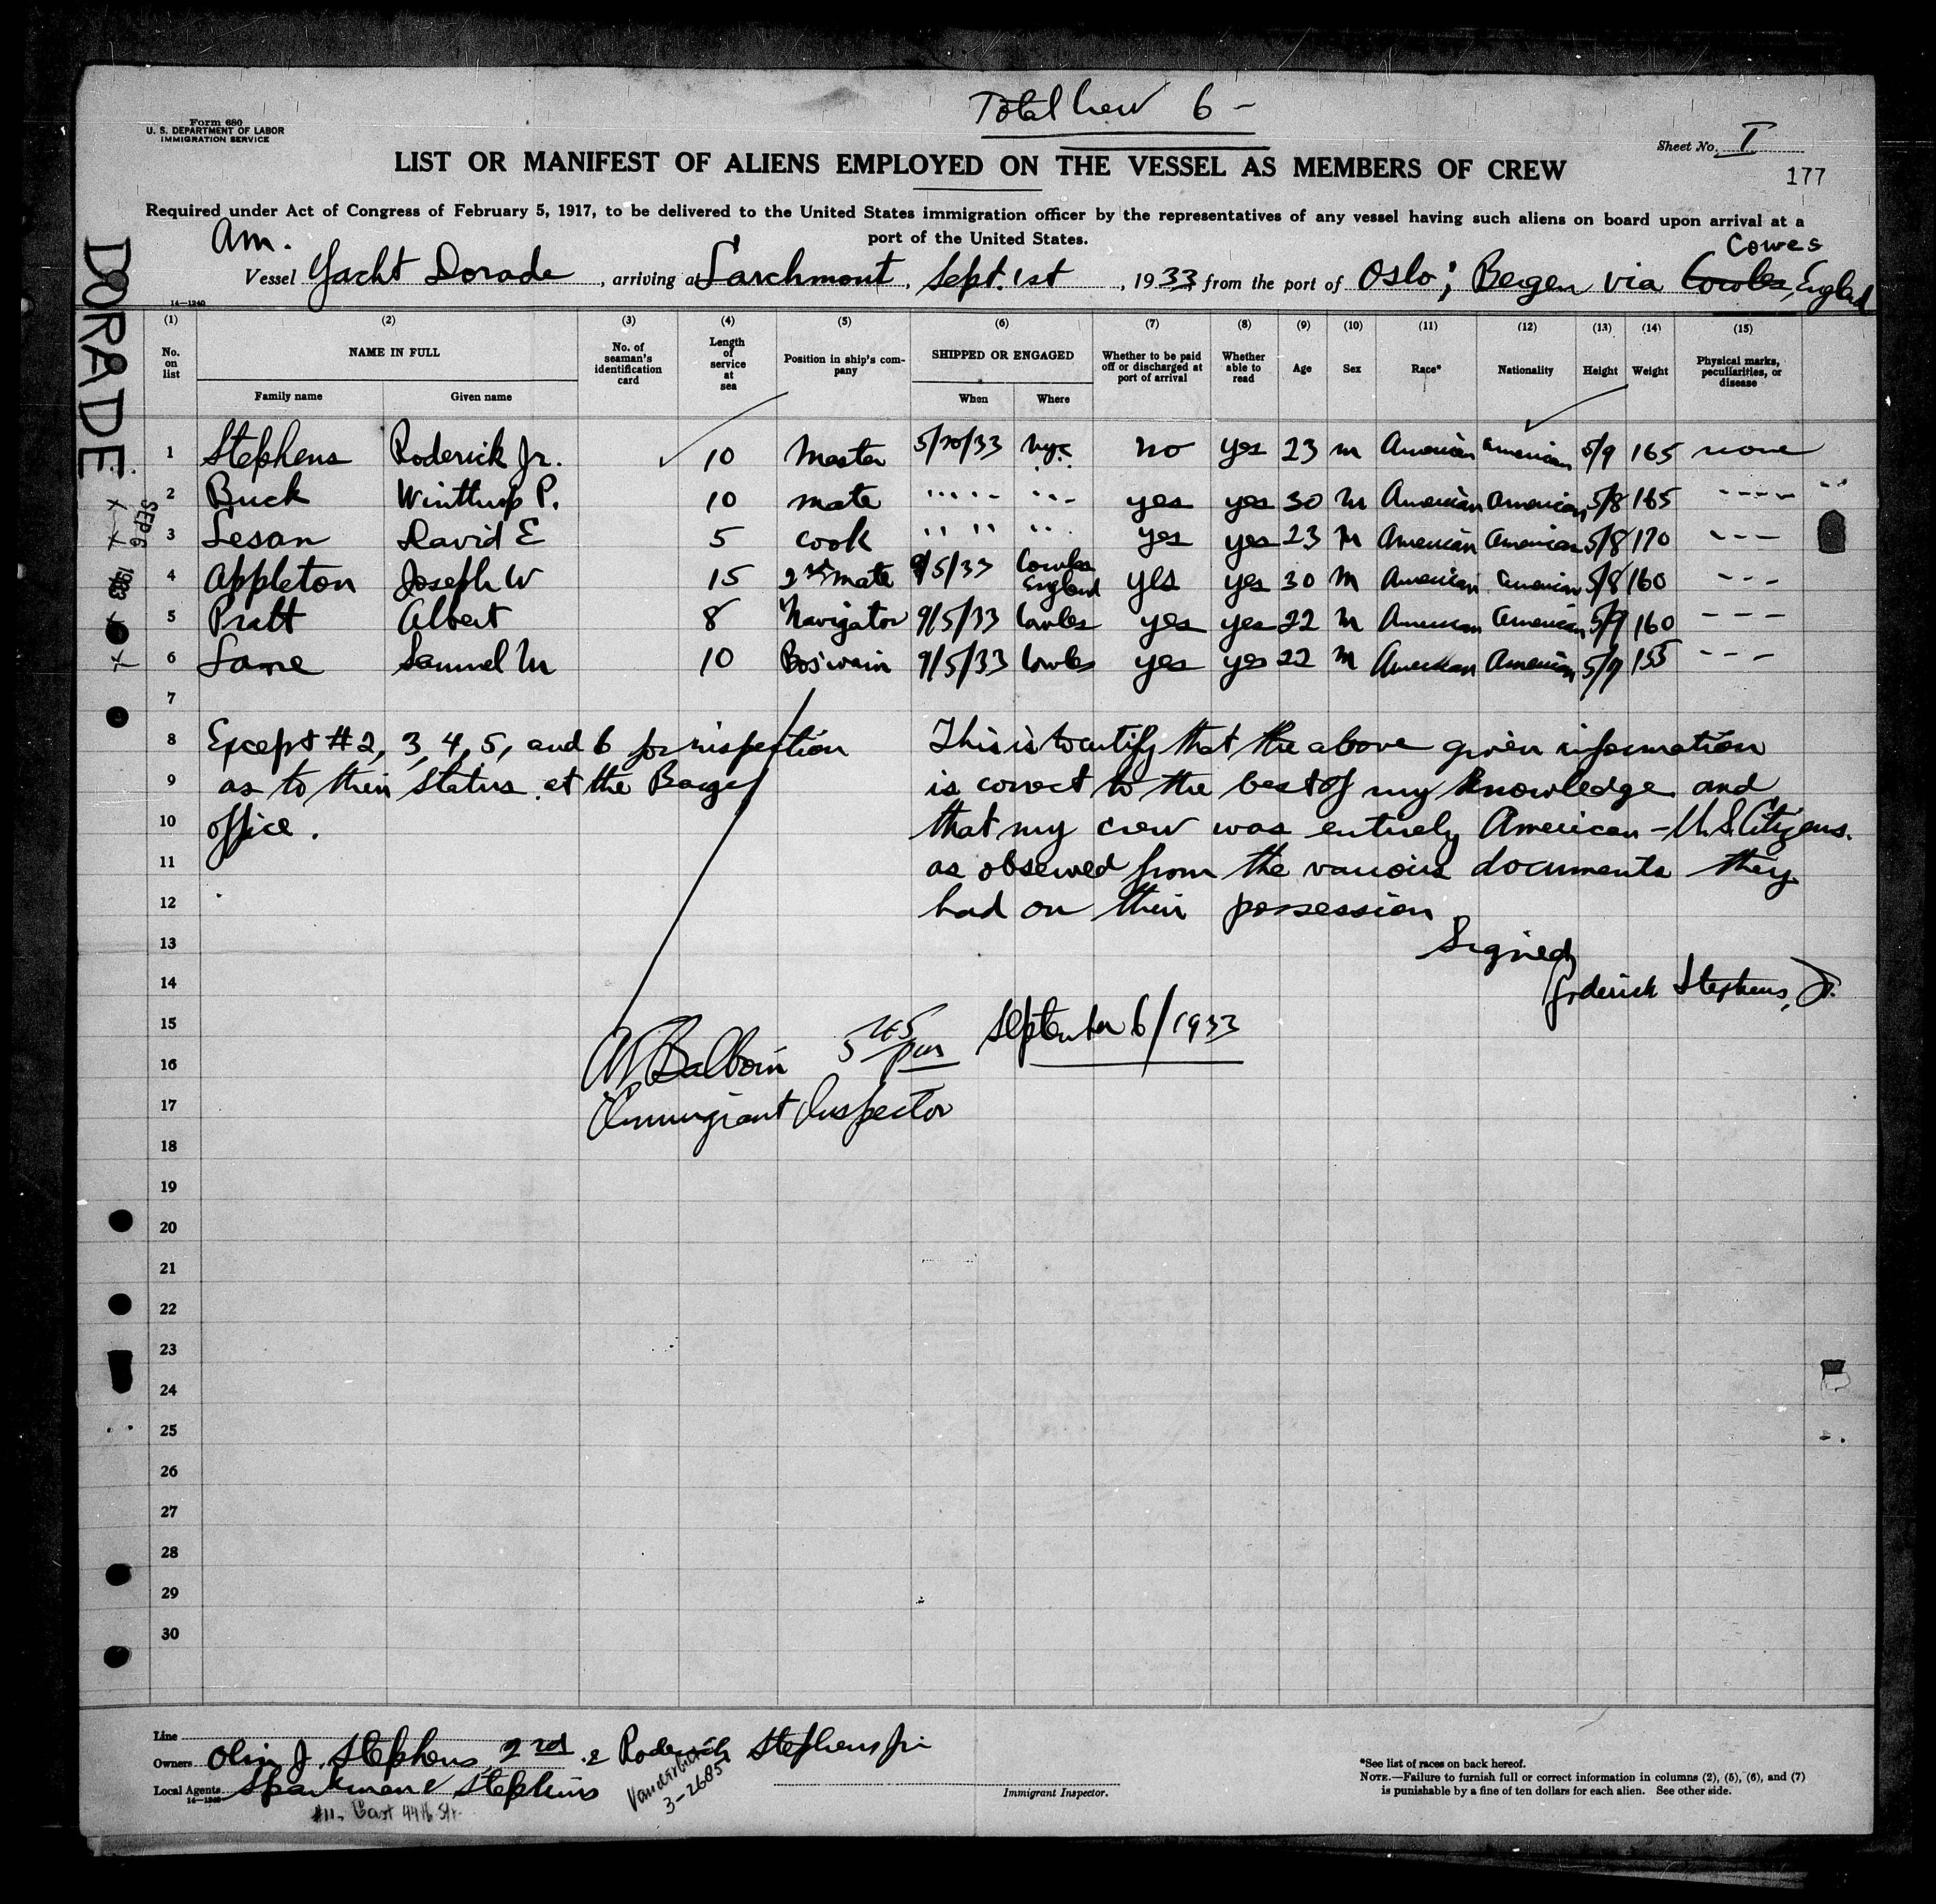 Total Crew 6 -
Form 680
U. S. DEPARTMENT OF LABOR
IMMIGRATION SERVICE
Sheet No. I
LIST OR MANIFEST OF ALIENS EMPLOYED ON THE VESSEL AS MEMBERS OF CREW
177
Required under Act of Congress of February 5, 1917, to be delivered to the United States immigration officer by the representatives of any vessel having such aliens on board upon arrival at a
port of the United States.
Am.
Cowes
Vessel Yacht Dorade, arriving at Larchmont, Sept. 1st, 1933 from the port of Oslo; Bergen via Cowles, England
14-1240
DORADE
SEP 6 1933
(1) (2) (3) (4) (5) (6) (7) (8) (9) (10) (11) (12) (13) (14) (15)
No. on list NAME IN FULL No. of seaman's identification card Length of service at sea Position in ship's company SHIPPED OR ENGAGED Whether to be paid off or discharged at port of arrival Whether able to read Age Sex Race* Nationality Height Weight Physical marks, peculiarities, or disease
Family name Given name When Where
1 Stephens Roderick Jr. 10 Master 5/20/33 NYC no yes 23 m American American 5/9 165 none
2 Buck Winthrop P. 10 mate " " " " yes yes 30 M American American 5/8 165 ----
3 Lesan David E 5 cook " " " " yes yes 23 M American American 5/8 170 ---
4 Appleton Joseph W 15 2nd mate 9/5/33 Cowles England yes yes 30 M American American 5/8 160 ---
5 Pratt Albert 8 Navigator 9/5/33 Cowles yes yes 22 M American American 5/9 160 ---
6 Lane Samuel M 10 Bos'wain 9/5/33 Cowles yes yes 22 M American American 5/9 155 ---
7
8 Except # 2, 3, 4, 5, and 6 for inspection This is to certify that the above given information
9 as to their status at the Barge is correct to the best of my knowledge and
10 office. that my crew was entirely American - U.S. Citizens.
11 as observed from the various documents they
12 had on their possession
13 Signed
14 Roderick Stephens, Jr.
15 5 45 pm September 6/1933
16
17 Immigrant Inspector
18
19
20
21
22
23
24
25
26
27
28
29
30
Line
Owners Olin J. Stephens, 2nd & Roderick Stephens Jr
Local Agents Sparkman & Stephens
14-1240
#11- East 44th Str.
Vanderbilt
3-2685
Immigrant Inspector.
*See list of races on back hereof.
NOTE.—Failure to furnish full or correct information in columns (2), (5), (6), and (7)
is punishable by a fine of ten dollars for each alien. See other side.